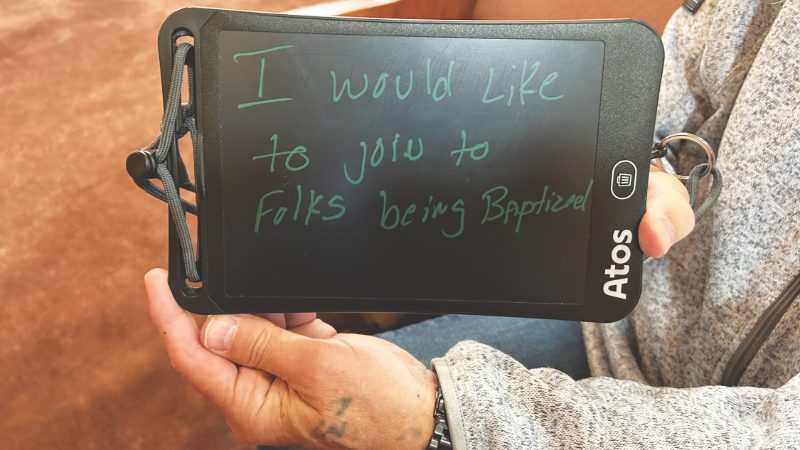 I would Like
to join to
Folks being Baptized
Atos